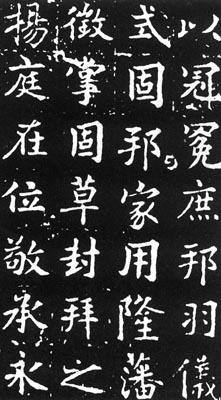 以冠冕庶邦羽儀
式固邦家用隆藩
徵掌固草封拜之
揚庭在位敬承永